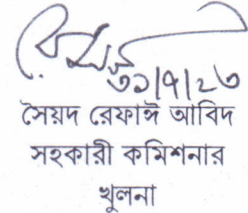 ৩১/৭/২৩
সৈয়দ রেফাঈ আবিদ
সহকারী কমিশনার
খুলনা